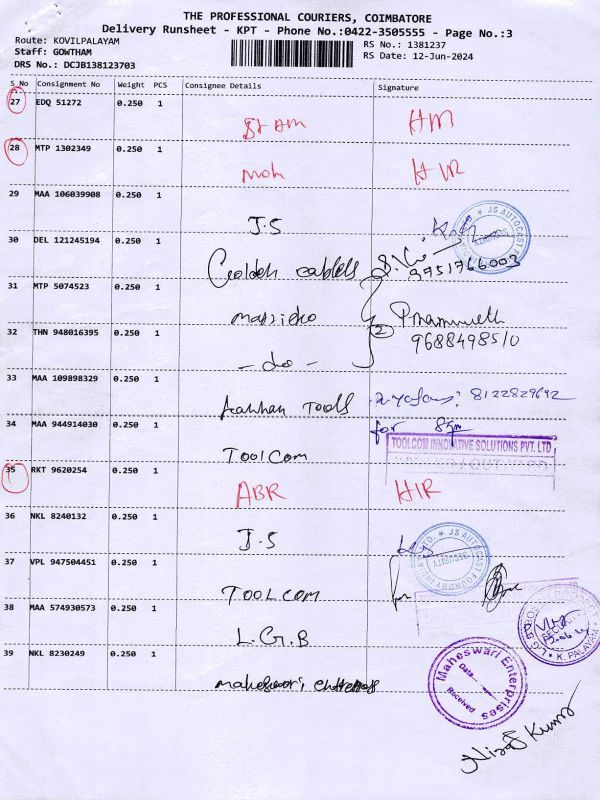 THE PROFESSIONAL COURIERS, COIMBATORE
Delivery Runsheet - KPT - Phone No.:0422-3505555 - Page No.:3
Route: KOVILPALAYAM
Staff: GOWTHAM
DRS No.: DCJB138123703
RS No.: 1381237
RS Date: 12-Jun-2024
S No Consignment No Weight PCS Consignee Details Signature
27 EDQ 51272 0.250 1
HM
28 MTP 1302349 0.250 1
29 MAA 106039908 0.250 1
J.S
JS AUTOCAST
SECURITY
30 DEL 121245194 0.250 1
cables
9751766003
31 MTP 5074523 0.250 1
2
9688498510
32 THN 948016395 0.250 1
- do -
33 MAA 109898329 0.250 1
Tools 8122829692
34 MAA 944914030 0.250 1
for
TOOLCOM INNOVATIVE SOLUTIONS PVT. LTD
ToolCom
35 RKT 9620254 0.250 1
ABR
36 NKL 8240132 0.250 1
J.S
JS AUTOCAST FOUNDRY INDIA
SECURITY
37 VPL 947504451 0.250 1
for
TOOLCOM
38 MAA 574930573 0.250 1
L.G.B
K. PALAYAM
39 NKL 8230249 0.250 1
Maheswari Enterprises
Date
Received
Kumar